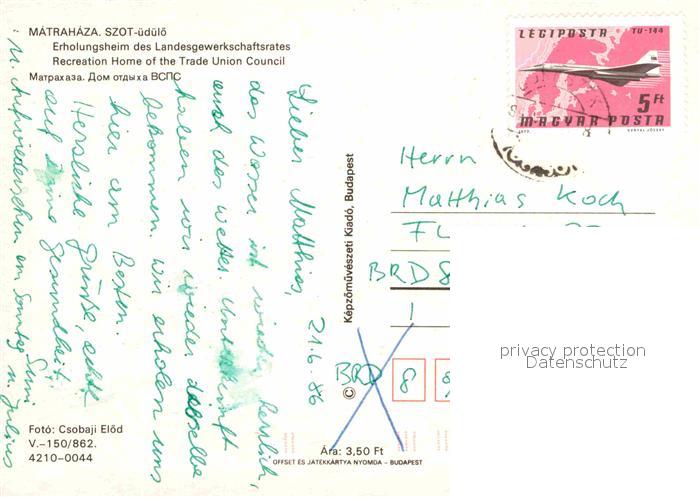 MÁTRAHÁZA. SZOT-üdülő
Erholungsheim des Landesgewerkschaftsrates
Recreation Home of the Trade Union Council
Матрахаза. Дом отдыха ВСПС
LÉGIPOSTA TU-144
5 Ft
MAGYAR POSTA
Lieber Matthias, 21.6.86
das Wasser ist wieder herrlich,
auch das Wetter. Unterkunft
haben wir wieder dieselbe
bekommen. Wir erholen uns
hier am Besten.
Herzliche Grüße,
auf Deine Gesundheit!
Aufwiedersehen am Sonntag
u. Julius
Képzőművészeti Kiadó, Budapest
©
Herrn
Matthias Koch
FL
BRD 8
BRD 8
privacy protection
Datenschutz
Fotó: Csobaji Előd
V.–150/862.
4210–0044
Ára: 3,50 Ft
OFFSET ÉS JÁTÉKKÁRTYA NYOMDA – BUDAPEST